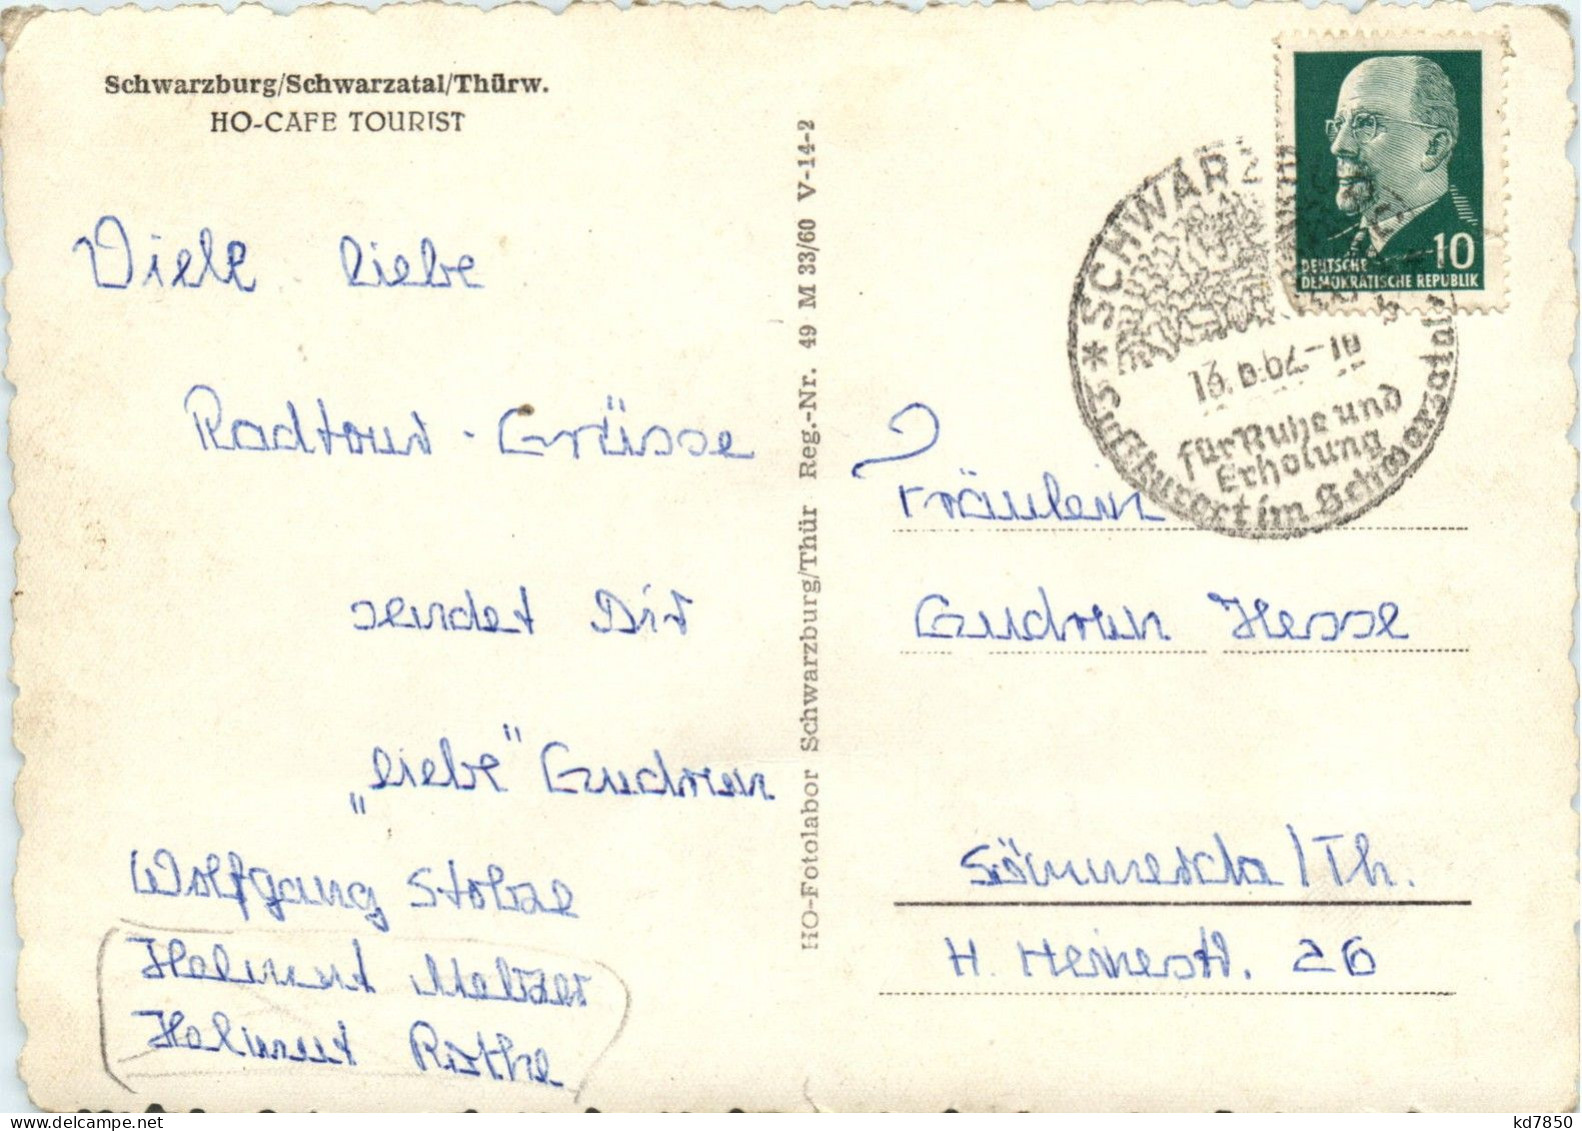 Schwarzburg/Schwarzatal/Thürw.
HO-CAFE TOURIST
Viele liebe
Radtour-Grüsse
sendet Dir
„liebe" Gudrun
Wolfgang
Helmut Meltzer
Helmut Rothe
HO-Fotolabor Schwarzburg/Thür Reg.-Nr. 49 M 33/60 V-14-2
10
DEUTSCHE
DEMOKRATISCHE REPUBLIK
* SCHWARZBURG
-10
für Ruhe und
Erholung
Luftkurort im Schwarzatal
Fräulein
Gudrun Hesse
Sömmerda/Th.
H. Heinestr. 26
kd7850